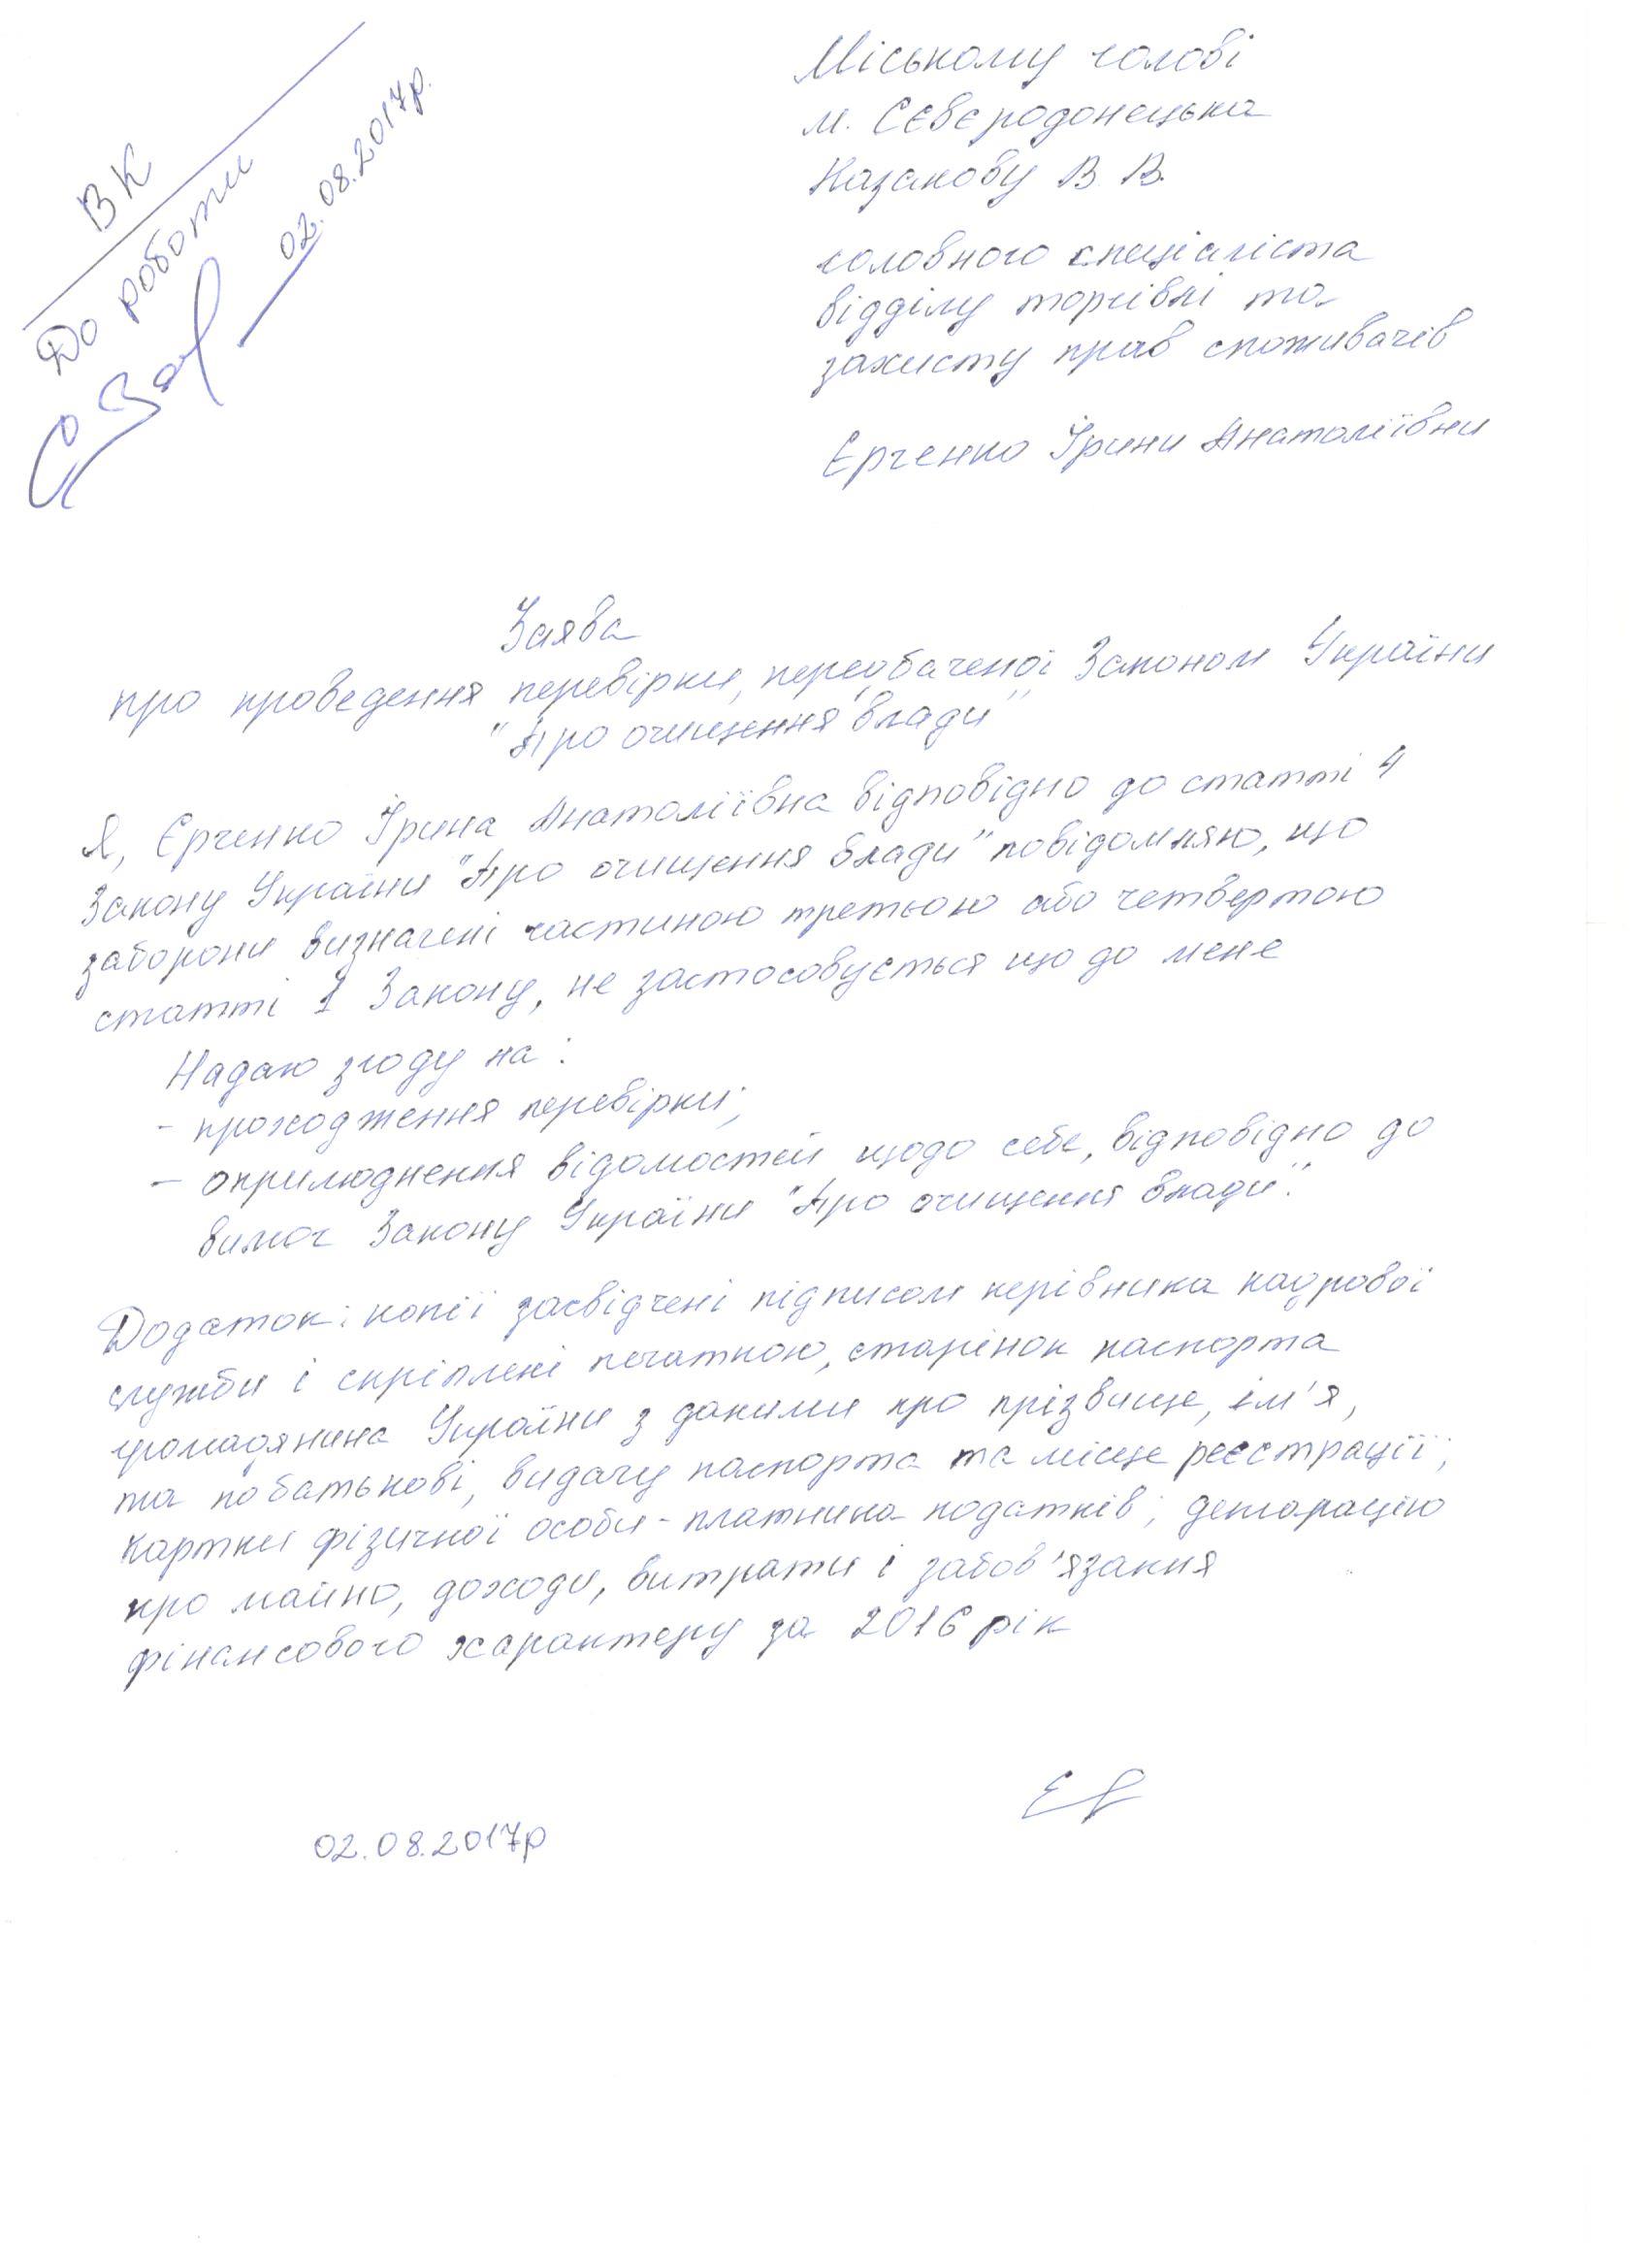 ВК
До роботи
02.08.2017р.
Міському голові
м. Сєвєродонецька
Казакову В. В.
головного спеціаліста
відділу торгівлі та
захисту прав споживачів
Єрченко Ірини Анатоліївни
Заява
про проведення перевірки, передбаченої Законом України
"Про очищення влади"
Я, Єрченко Ірина Анатоліївна відповідно до статті 4
Закону України "Про очищення влади" повідомляю, що
заборони визначені частиною третьою або четвертою
статті 1 Закону, не застосовується що до мене
Надаю згоду на:
- проходження перевірки;
- оприлюднення відомостей щодо себе, відповідно до
вимог Закону України "Про очищення влади".
Додаток: копії засвідчені підписом керівника кадрової
служби і скріплені печаткою, старінок паспорта
громадянина України з даними про прізвище, ім'я,
та побатькові, видачу паспорта та місце реєстрації;
картки фізичної особи-платника податків; декларацію
про майно, доходи, витрати і забов'язання
фінансового характеру за 2016 рік
02.08.2017р